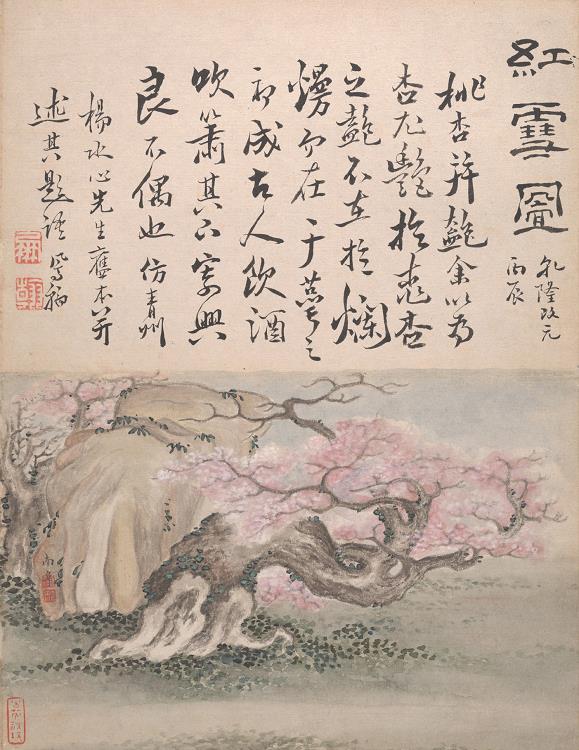 紅雪圖
乾隆改元
丙辰
桃杏并艷余以為
杏尤艷於桃杏
之艷不在於爛
熳而在于之
成古人飲酒
吹簫其下寄興
良不偶也仿青州
楊水心先生舊本并
述其題語